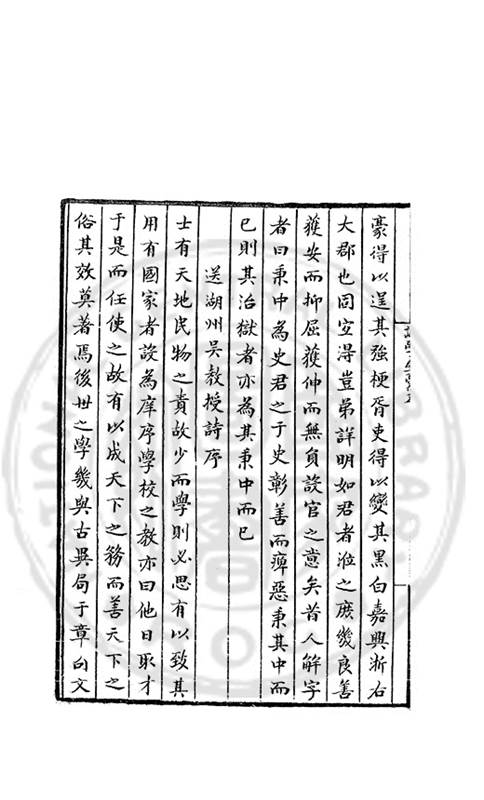 豪得以逞其強梗胥吏得以變其黑白嘉興浙右
大郡也固宜得豈弟詳明如君者涖之庶幾良善
獲安而抑屈獲伸而無負設官之意矣昔人解字
者曰秉中為史君之于史彰善而癉惡秉其中而
已則其治獄者亦為其秉中而已
送湖州吳教授詩序
士有天地民物之責故少而學則必思有以致其
用有國家者設為庠序學校之教亦曰他日取才
于是而任使之故有以成天下之務而善天下之
俗其效莫著焉後世之學幾與古異局于章句文